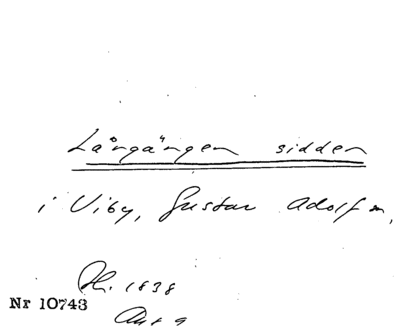 Långången sidden
i Viby, Gustav Adolf sn,
1838
Nr 10743